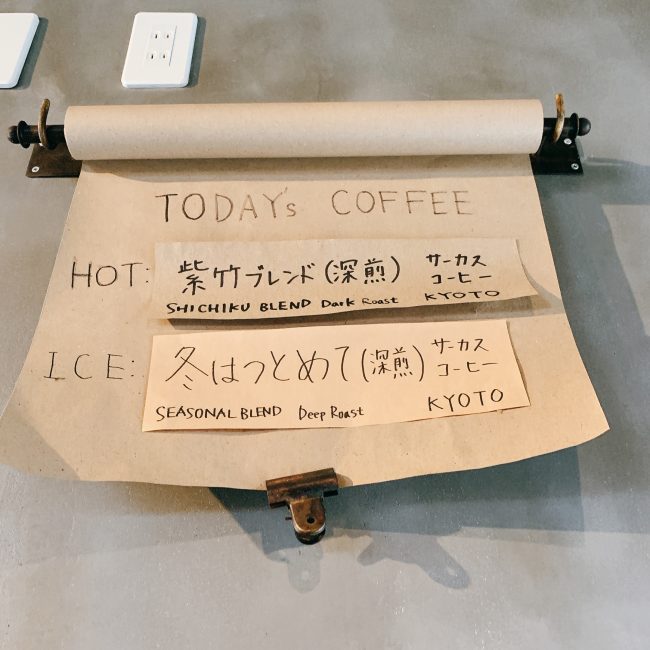 TODAY's COFFEE
HOT: 紫竹ブレンド(深煎) サーカス
コーヒー
SHICHIKU BLEND Dark Roast KYOTO
ICE: 冬はつとめて(深煎) サーカス
コーヒー
SEASONAL BLEND Deep Roast KYOTO